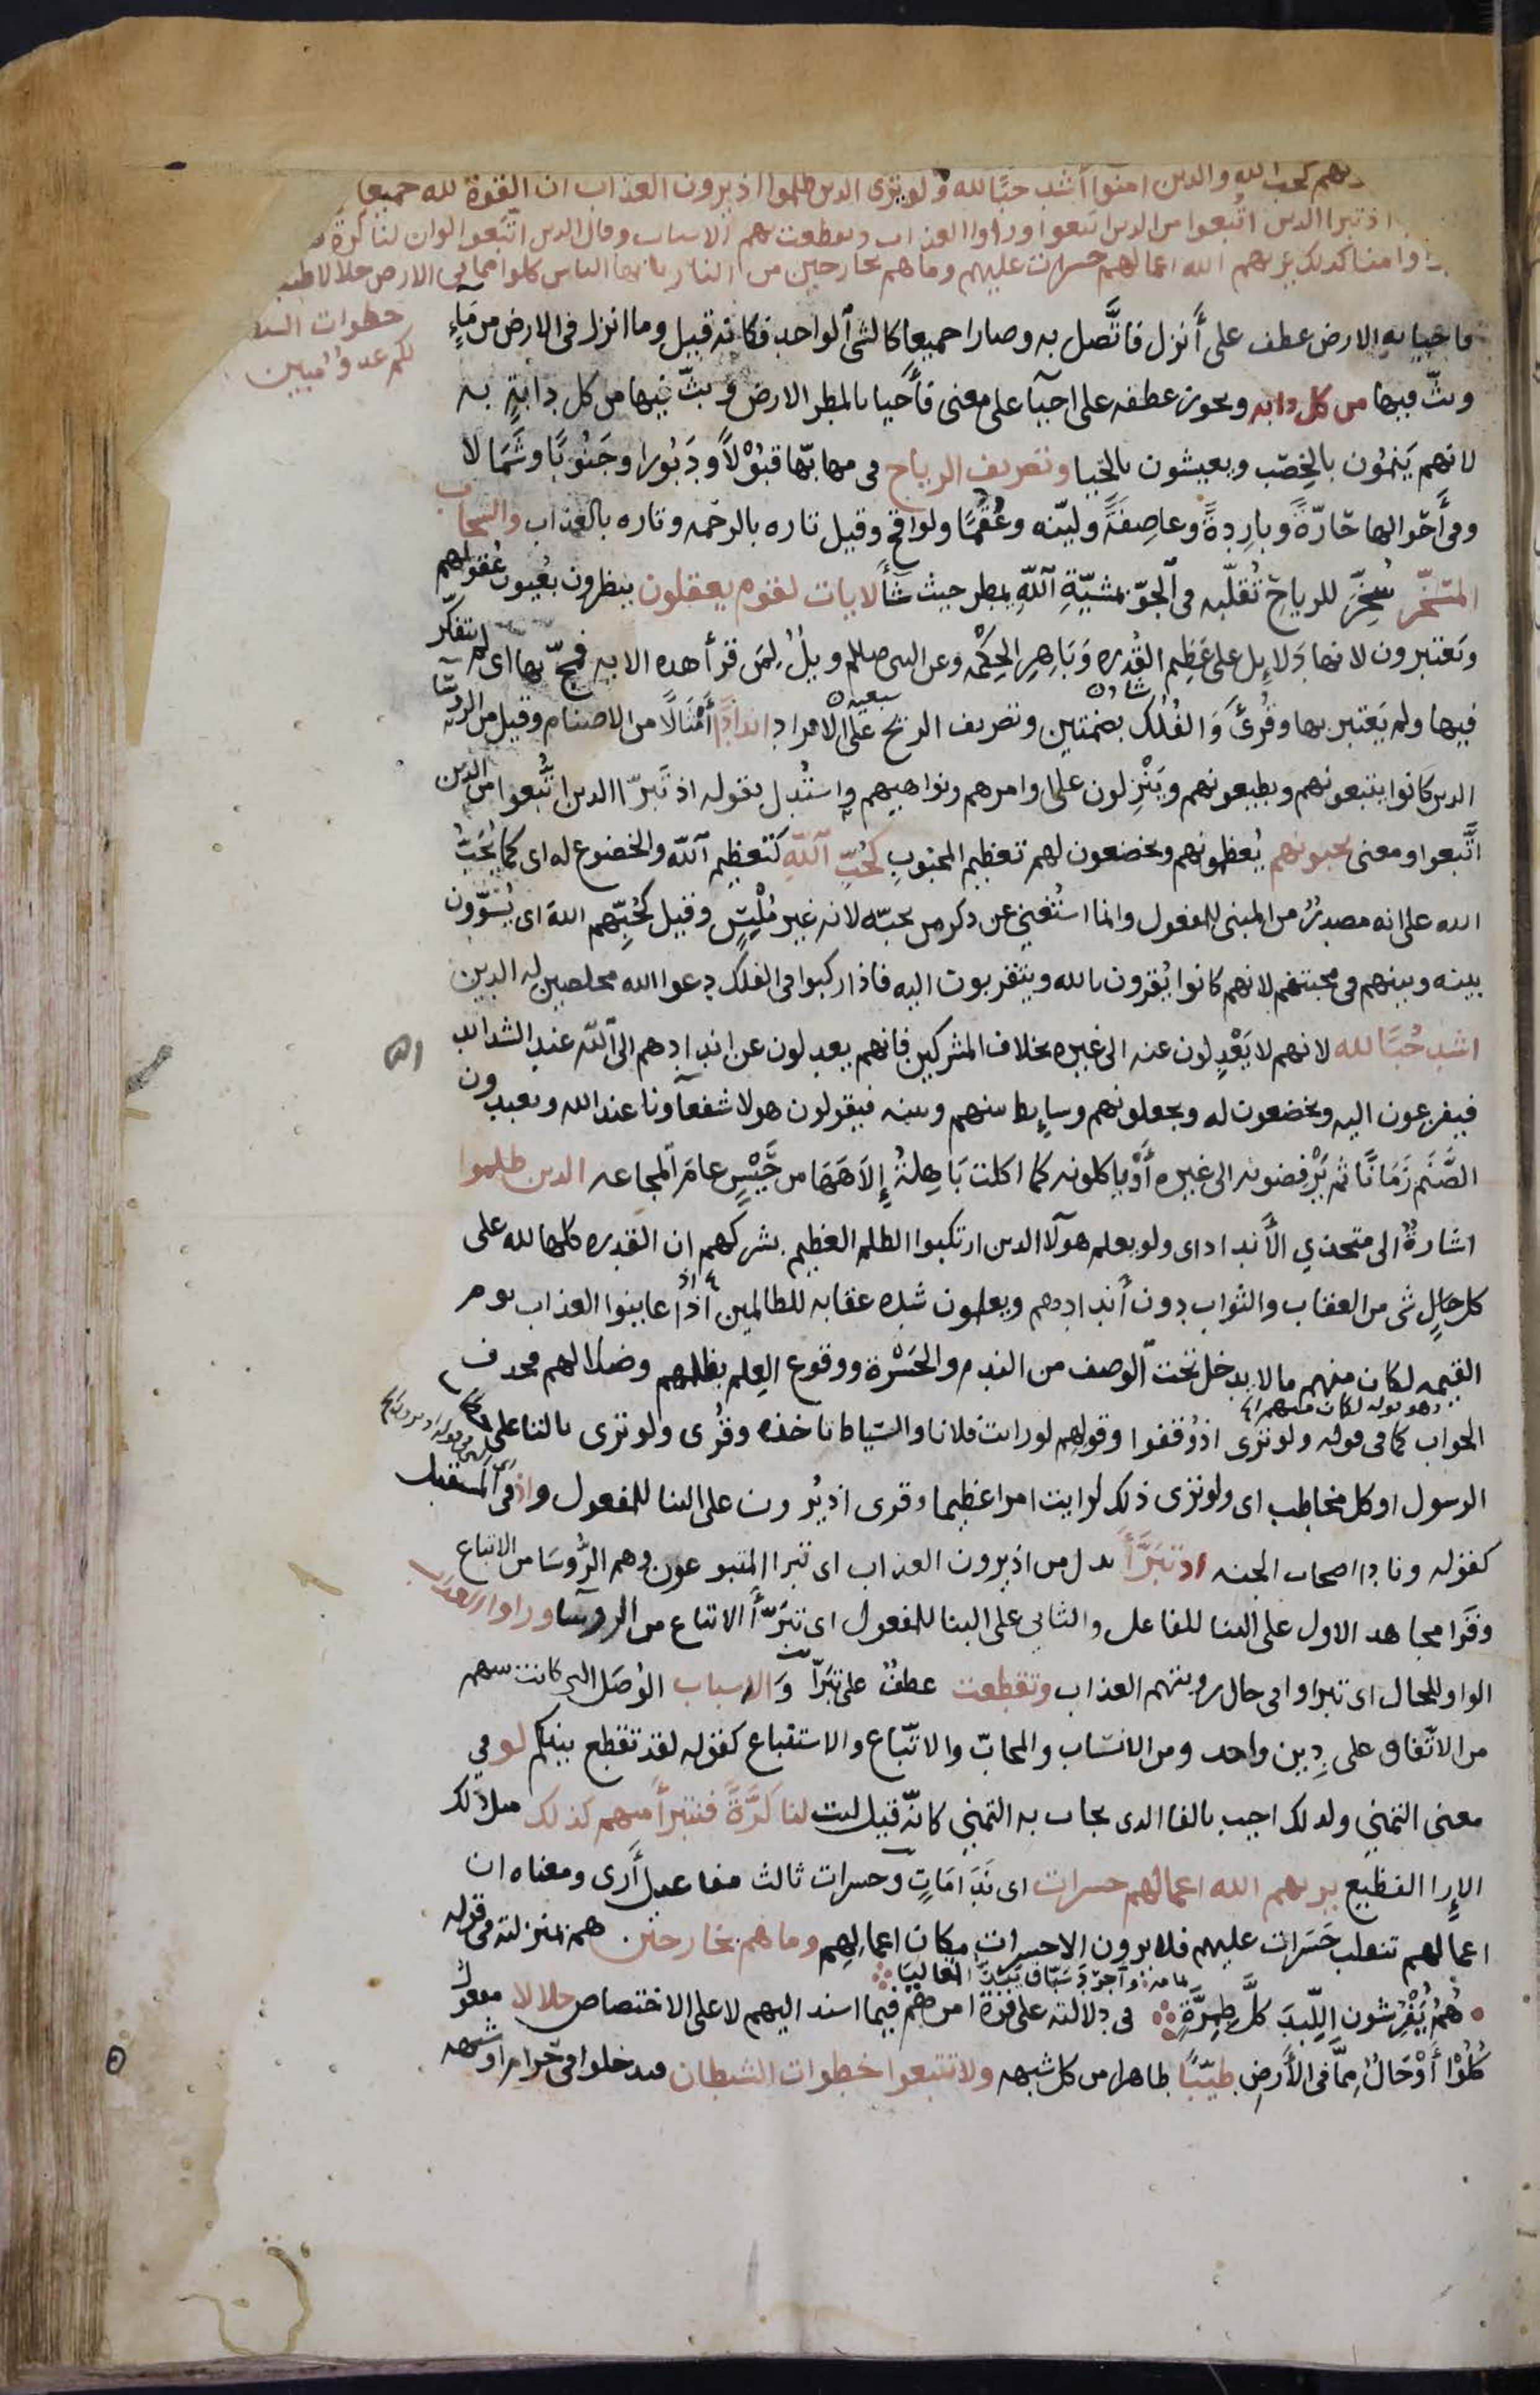 كحب الله والدين امنوا أشد حبًا لله ولو ترى الدين ظلموا اذ يرون العذاب ان القوة لله جميعا
اذ تبرا الدين اتُبعوا من الدين اتبعوا وراوا العذاب وتقطعت بهم الاسباب وقال الدين اتَّبعوا لو ان لنا كرة
منا كدلك يريهم الله اعمالهم حسرات عليهم وما هم بخارجين من النار يا يها الناس كلوا مما في الارض حلالا
خطوات
لكم عدوٌ مبين
فاحيا به الارض عطف على أَنزل فاتَّصل به وصارا جميعًا كالشى ٱلواحد فكانه قيل وما انزل فى الارض من مَآءٍ
وبثّ فيها من كل دابه ويجوز عطفه على احيآ على معنى فأَحيا بالمطر الارض وبثّ فيها من كل دابةٍ به
لانهم يَنمُون بالخِصْب ويعيشون بالحَيا وتصريف الرياح فى مهابّها قَبُوْلاً ودَبُورا وجَنُوبًا وشَمَالا
وفى أَحوالها حَارّةً وبارِدةً وعاصِفَةً وليّنه وعُقُمًا ولواقح وقيل تاره بالرحمه وتاره بالعذاب والسحاب
المسَخّر سُخِّرَ للرياح تُقلّبه فى ٱلجوّ بمشيّةِ ٱللّهِ يمطر حيث شَأَ لايات لقوم يعقلون ينظرون بعُيون عُقولهم
ويَعتبرون لانها دَلايِل على عَظِيم القُدره وَبَاهِرِ الحِكْمَه وعن النبى صلعم ويلٌ لِمَن قرأ هده الايه فمجّ بها اى لم يتفكّر
فيها ولم يَعتبر بها وقُرئَ وَالفُلُك بضمتين وتصريف الريح على الافراد اندادًا أَمْثَالاً من الاصنام وقيل من الرؤسَآ
الدين كانوا يتبعونهم ويطيعونهم ويَنْزِلون على اوامرهم ونواهيهم واستُدِل بقوله اذ تَبَرّا الدين اتُّبعوا من الدين
اتَّبعوا ومعنى يحبونهم يُعظمونهم ويخضعون لهم تعظيم المحبُوبِ كَحُبِّ ٱللّهِ كتعظيم ٱللّه والخضوع له اى كما يُحَبُّ
الله على انه مصدرٌ من المبنى للمفعول وانما استُغنِىَ عن دكر من يحبّه لانه غير مُلْبِسٍ وقيل كحُبِّهم اللهَ اى يُسَوّون
بينه وبينهم فى محبتهم لانهم كانوا يُقرون بالله ويتقربون اليه فاذا ركبوا فى الفلك دعوا الله مخلصين له الدين
اشد حُبًا لله لانهم لا يَعْدِلون عنه الى غيره بخلاف المشركين فانهم يعدلون عن اندادهم الى ٱللّه عند الشدايد
فيفزعون اليه ويخضعون له ويجعلونهم وسايِط بينهم وبينه فيقولون هولا شفعآونا عند الله ويعبدون
الصَّنَم زَمَانًا ثم يَرْفِضونه الى غيره أَوْ ياكلونه كما اكلت بَاهِلَةُ إِلاهَهَا من حَيْسٍ عامَ ٱلمجاعه الدين ظلموا
اشارةٌ الى متخذي الأَنداد اى ولو يعلم هولآ الدين ارتكبوا الظلم العظيم بشركهم ان القدره كلها لله على
كل حالٍ شى من العقاب والثواب دون أَندادهم ويعلمون شده عقابه للظالمين اذا عاينوا العذاب يوم
القيمه لكان منهم ما لا يدخل تحت ٱلوصف من الندم والحَسْرة ووقوع العِلم بظلمهم وضلالهم فحدف
وهو قوله لكان منهم
الجواب كما فى قوله ولو ترى اذ وُقفوا وقولهم لو رايت فلانا والسّياط تاخذه وقُرِى ولو ترى بالتا على
الرسول او كل مخاطب اى ولو ترى ذلك لرايت امرا عظيما وقرى اذ يُرون على البنا للمفعول واذ فى المستقبل
كقوله ونادا اصحاب الجنه اذ تبَرَّأَ بدل من اذ يرون العذاب اى تبرا المتبوعون وهم الرُؤسَا من الاتباع
وقَرا مجاهد الاول على البنا للفاعل والثانى على البنا للمفعول اى تبَرَّأَ الاتباع من الروسآ وراوا العذاب
الواو للحال اى تبراو افى حال رويتهم العذاب وتقطعت عطفٌ على تبَرّا وَالاسباب الوُصَل التى كانت بينهم
من الاتّفاق على دِين واحد ومن الانسَاب والمحابّ والاتّباع والاستتباع كقوله لقد تقطع بينكم لو فى
معنى التمنى ولدلك اجيب بالفا الدى يجاب به التمنى كانّه قيل ليت لنا كَرَّةً فنتبرأَ منهم كذلك مثل ذلك
الإِرا الفظيع يريهم الله اعمالهم حسرات اى نَدَامَاتٍ وحسرات ثالث مفاعيل أَرى ومعناه ان
اعمالهم تنقلب حَسَرات عليهم فلا يرون الا حسراتٍ مكان اعمالِهم وما هم بخارجين هم بمنزلته فى قوله
هُمُ يُفْرِشون اللِّبدَ كلَّ طِمِرَّةٍ فى دلالته على قوة امرهم فيما اسند اليهم لا على الاختصاص حلالا مفعول
كُلُوْا أَوْ حَالٌ مِمَّا فى الأَرض طيّبًا طاهرا من كل شبهه ولا تتبعوا خطوات الشيطان فتدخلوا فى حَرام او شبهه